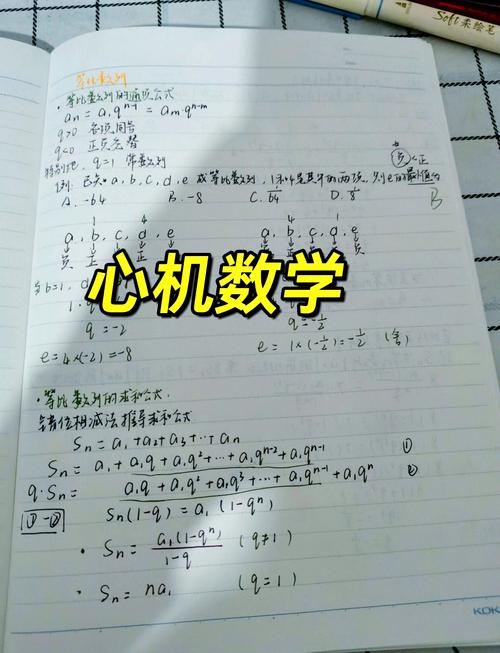 Soft 来绘笔
等比数列
· 等比数列的通项公式
aₙ = a₁qⁿ⁻¹ = aₘ·qⁿ⁻ᵐ
q>0 各项同号
q<0 正负交替
特别地, q=1 常数列
例: 已知 a, b, c, d, e 成等比数列, 1和4是其中的两项, 则e的最小值为
负<正
B
A. -64 B. -8 C. 1/64 D. 1/8
1 4 4 1
a, b, c, d, e a, b, c, d, e
负 正 负 正 负 负 正 负 正 负
当b=1, d
心机数学
1·q
q = -2 q = -1/2
e = 4×(-2) = -8 e = 1×(-1/2) = -1/2 (舍)
· 等比数列的求和公式.
错位相减法推导求和公式
Sₙ = a₁+a₂+a₃+···+aₙ
Sₙ = a₁ + a₁q + a₁q² + ··· + a₁qⁿ⁻² + a₁qⁿ⁻¹ ①
q·Sₙ = a₁q + a₁q² + a₁q³ + ··· + a₁qⁿ⁻¹ + a₁qⁿ ②
①-②
Sₙ(1-q) = a₁(1-qⁿ)
· Sₙ = a₁(1-qⁿ)/1-q (q≠1)
· Sₙ = na₁ (q=1)
KOK